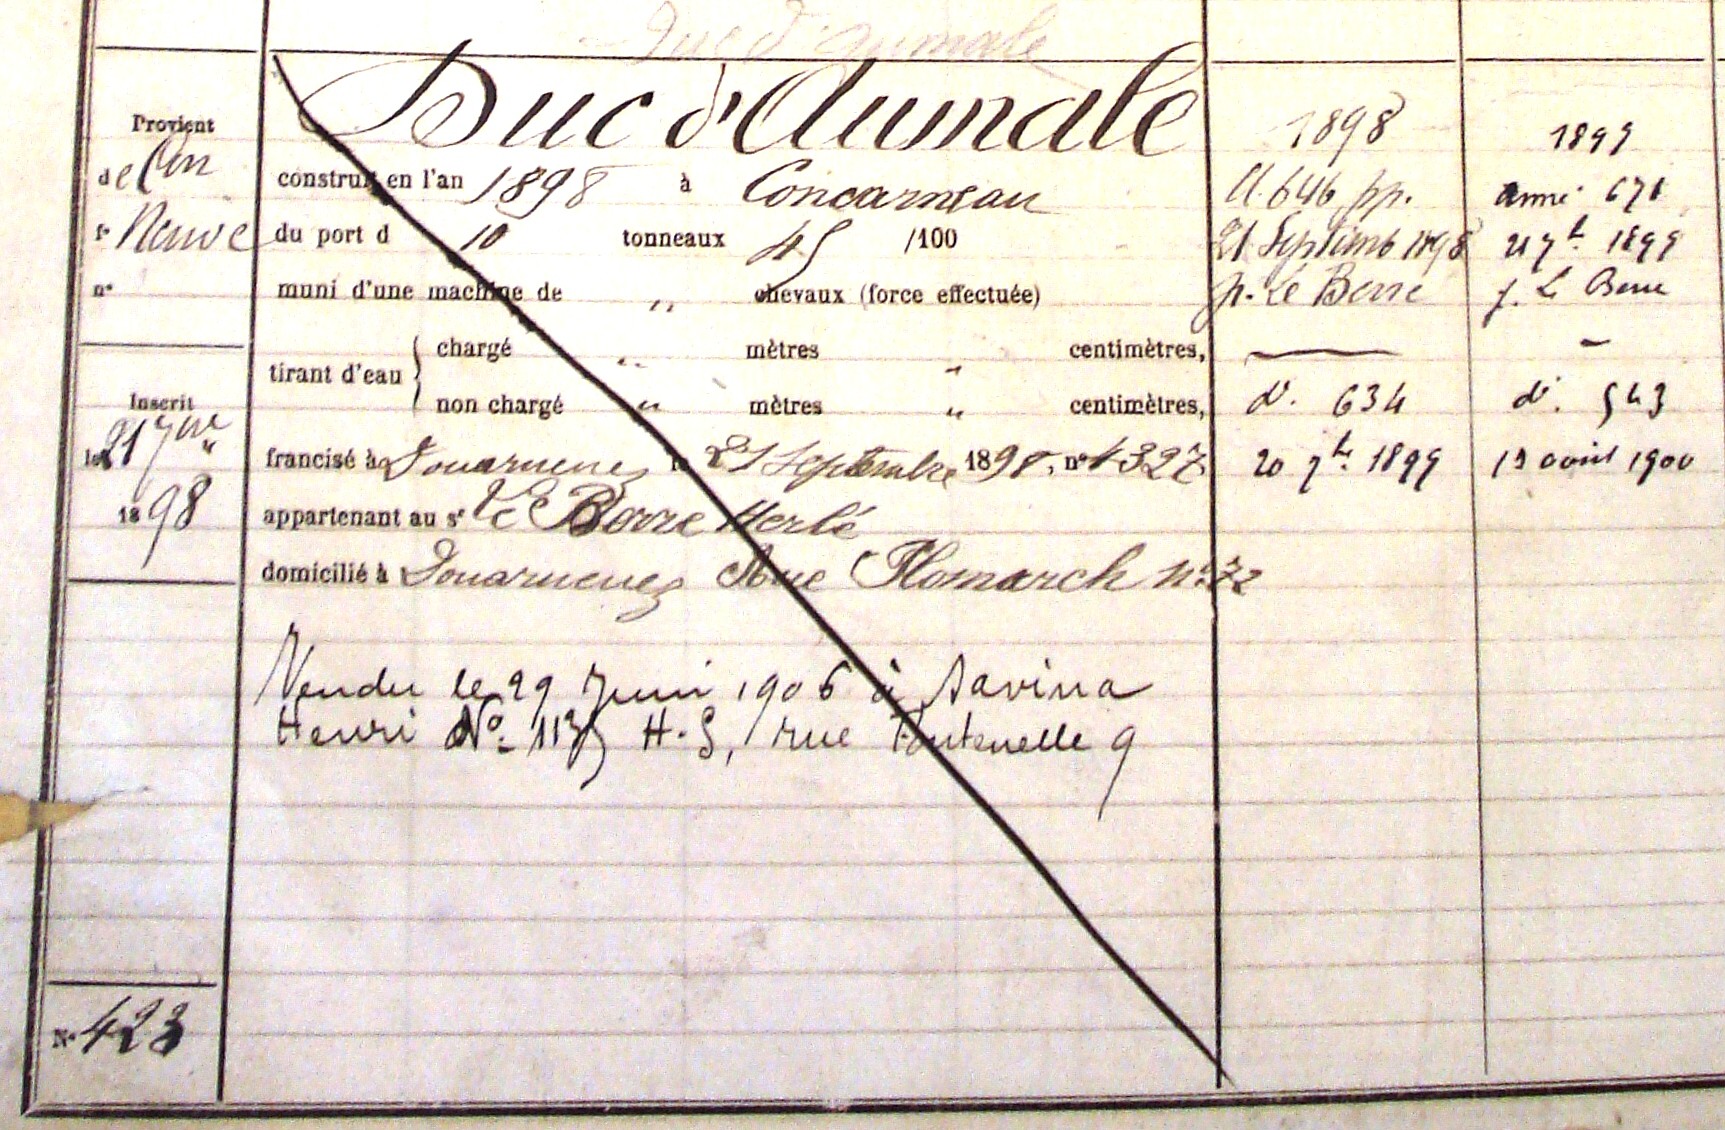 Duc d'Aumale
Duc d'Aumale
Provient
de Con
fᵒ Neuve
nᵒ
Inscrit
le 21 7bre
1898
Nᵒ 423
construit en l'an 1898 à Concarneau
du port d 10 tonneaux 45 /100
muni d'une machine de " chevaux (force effectuée)
tirant d'eau
chargé " mètres " centimètres,
non chargé " mètres " centimètres,
francisé à Douarnenez le 21 Septembre 1898, nᵒ 1327
appartenant au sʳ Le Berre Herlé
domicilié à Douarnenez Rue Plomarch Nᵒ 32
Vendu le 29 Juin 1906 à Savina
Henri Nᵒ 1135 H.S, rue Fontenelle 9
1898
A. 646 pp.
21 Septemb 1898
p. Le Berre
d. 634
20 7b. 1899
1899
armé 671
21 7b. 1899
p. Le Berre
d. 543
19 avril 1900